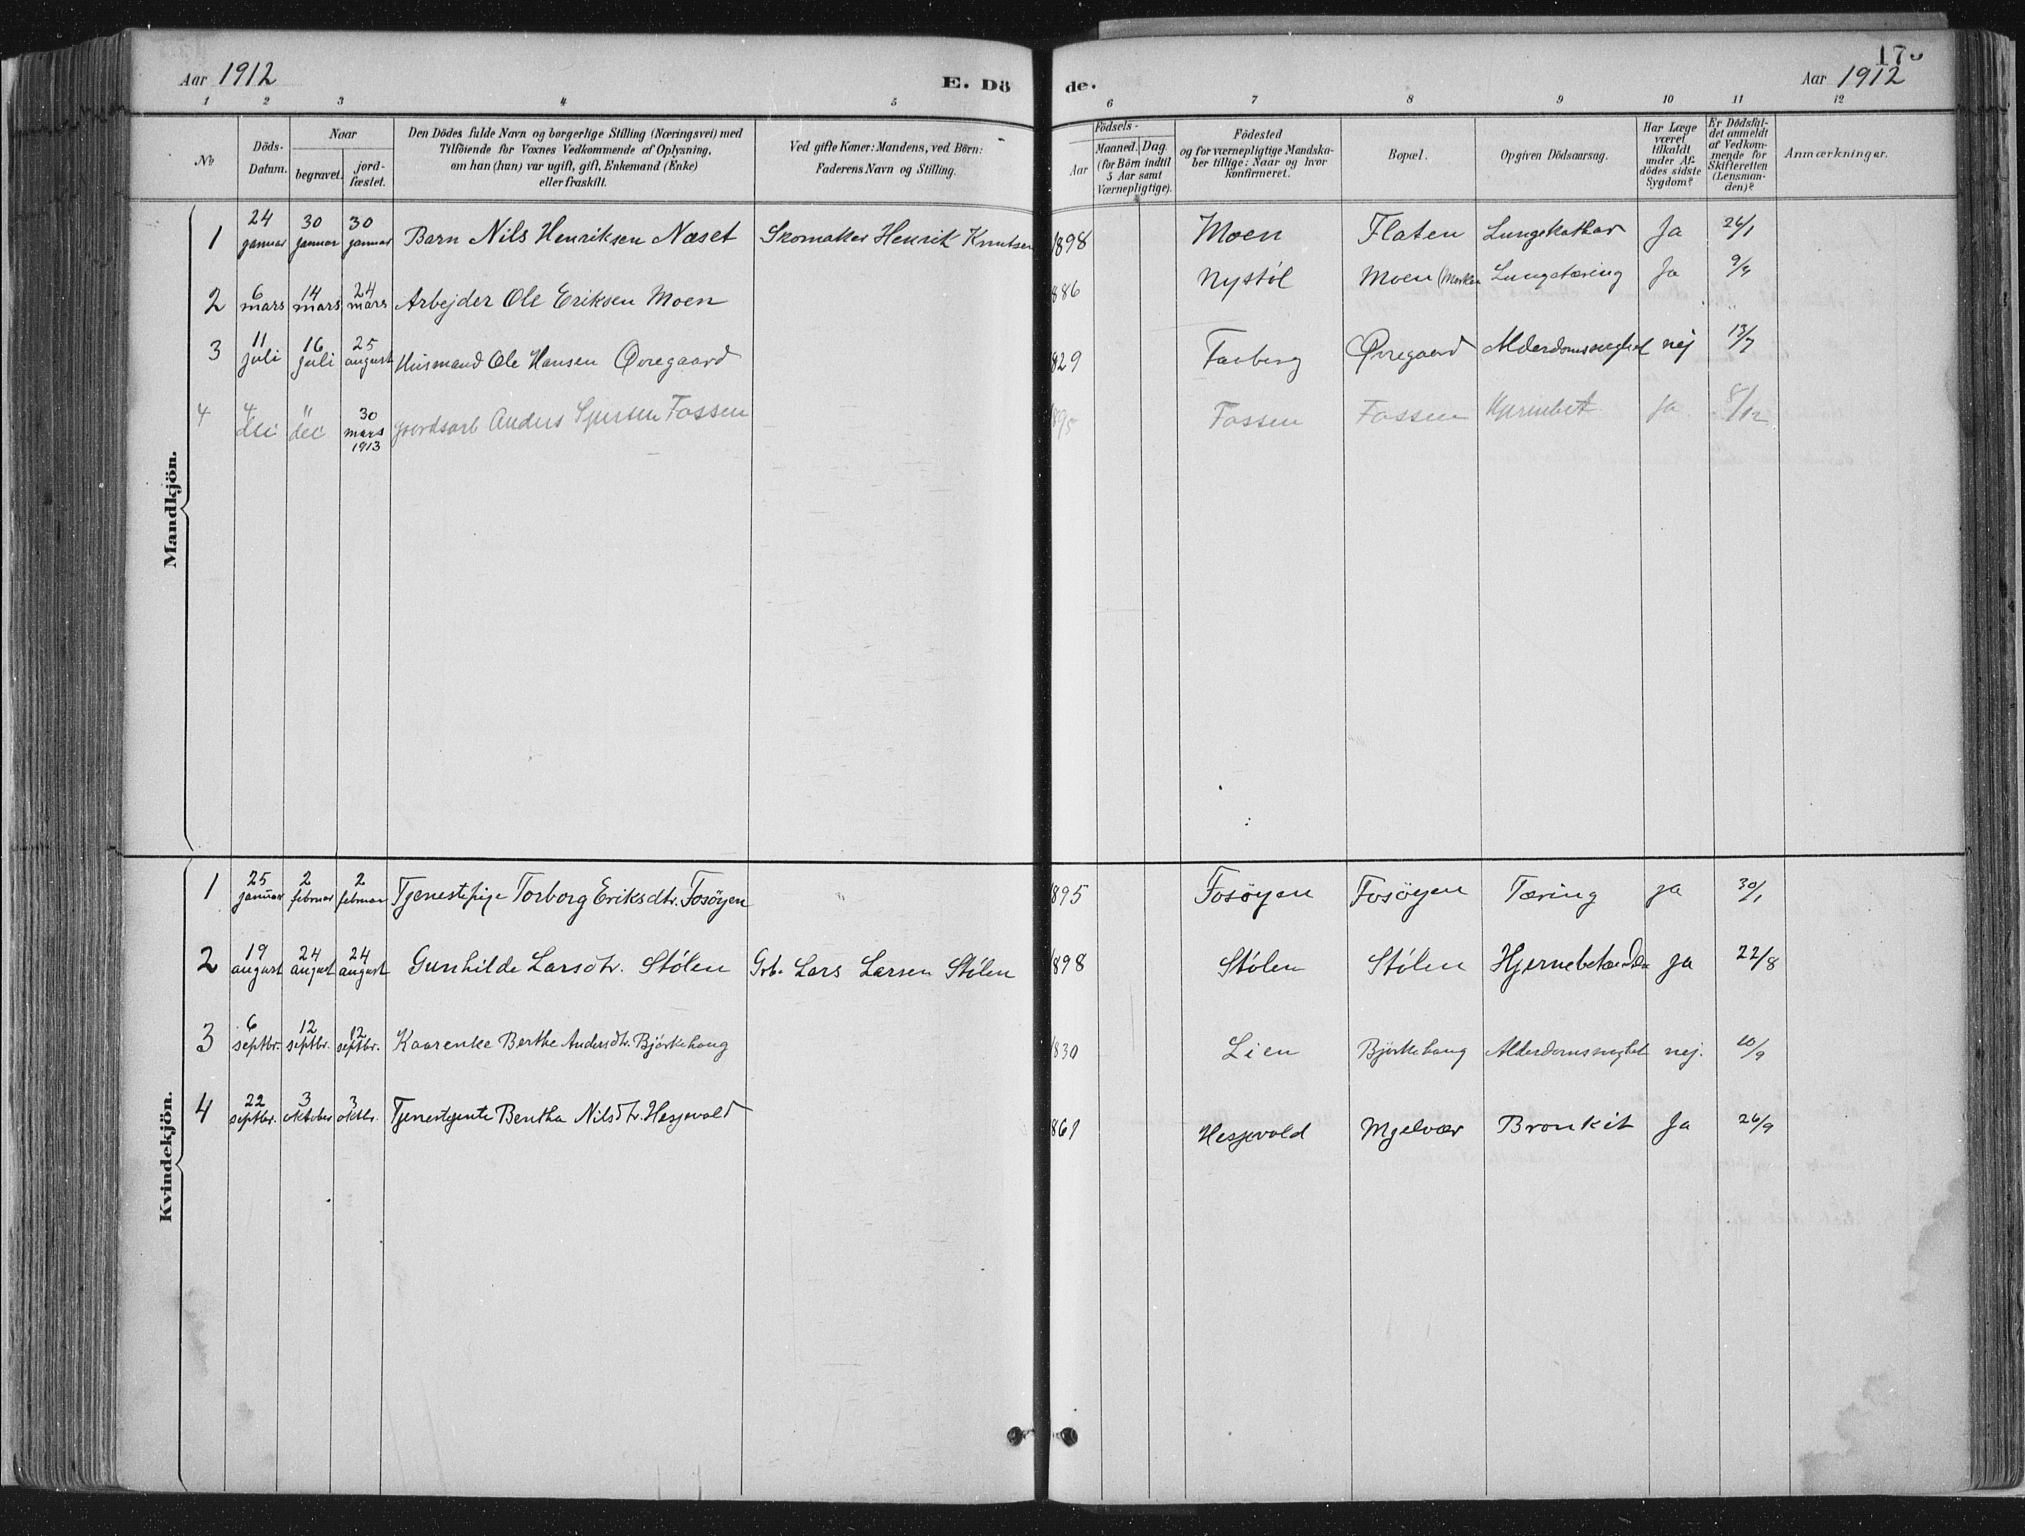 Aar 1912
E. Dö
de.
170
Aar 1912
1 2 3 4 5 6 7 8 9 10 11 12
No
Döds-Datum.
Naar
begravet.
jord-fæstet.
Den Dödes fulde Navn og borgerlige Stilling (Næringsvei) med
Tilföiende for Voxnes Vedkommende af Oplysning,
om han (hun) var ugift, gift, Enkemand (Enke)
eller fraskilt.
Ved gifte Koner: Mandens, ved Börn:
Faderens Navn og Stilling.
Födsels-
Aar
Maaned. Dag
(for Börn indtil
5 Aar samt
Værnepligtige).
Födested
og for værnepligtige Mandska-
ber tillige: Naar og hvor
konfirmeret.
Bopæl.
Opgiven Dödsaarsag.
Har Læge
været
tilkaldt
under Af-
dödes sidste
Sygdom?
Er Dödsfal-
det anmeldt
af Vedkom-
mende for
Skifteretten
(Lensman-
den)?
Anmærkninger.
Mandkjön.
1 24 januar 30 januar 30 januar Barn Nils Henriksen Næset Skomaker Henrik Knutsen 1898 Moen Flaten Lungekathar Ja 26/1
2 6 mars 14 mars 24 mars Arbejder Ole Eriksen Moen 886 Nystøl Moen Lungetæring Ja 9/4
3 11 juli 16 juli 25 august Husmand Ole Hansen Øvregaard 829 Farberg Øvregaard Alderdomssvaghet nej 13/7
4 4 dec " dec 30 mars 1913 gaardsarb Anders Fossen 895 Fossen Fossen Hjernebet ja 8/12
Kvindekjön.
1 25 januar 2 februar 2 februar Tjenestepige Torborg Eriksdtr. Fosöyen " 895 Fosöyen Fosöyen Tæring ja 30/1
2 19 august 24 august 24 august Gunhilde Larsdtr. Stølen Grb. Lars Larsen Stølen 1898 Stølen Stølen ja 22/8
3 6 septbr. 12 septbr. 12 septbr. Kaarenke Berthe Andersdtr. Björkehaug 1830 Lien Björkehaug Alderdomssvaghet nej. 10/9
4 22 septbr. 3 oktober 3 oktbr. Tjenestejente Bertha Nilsdtr. Hesjevold 861 Hesjevold Mjelvær Bronkit Ja 26/9